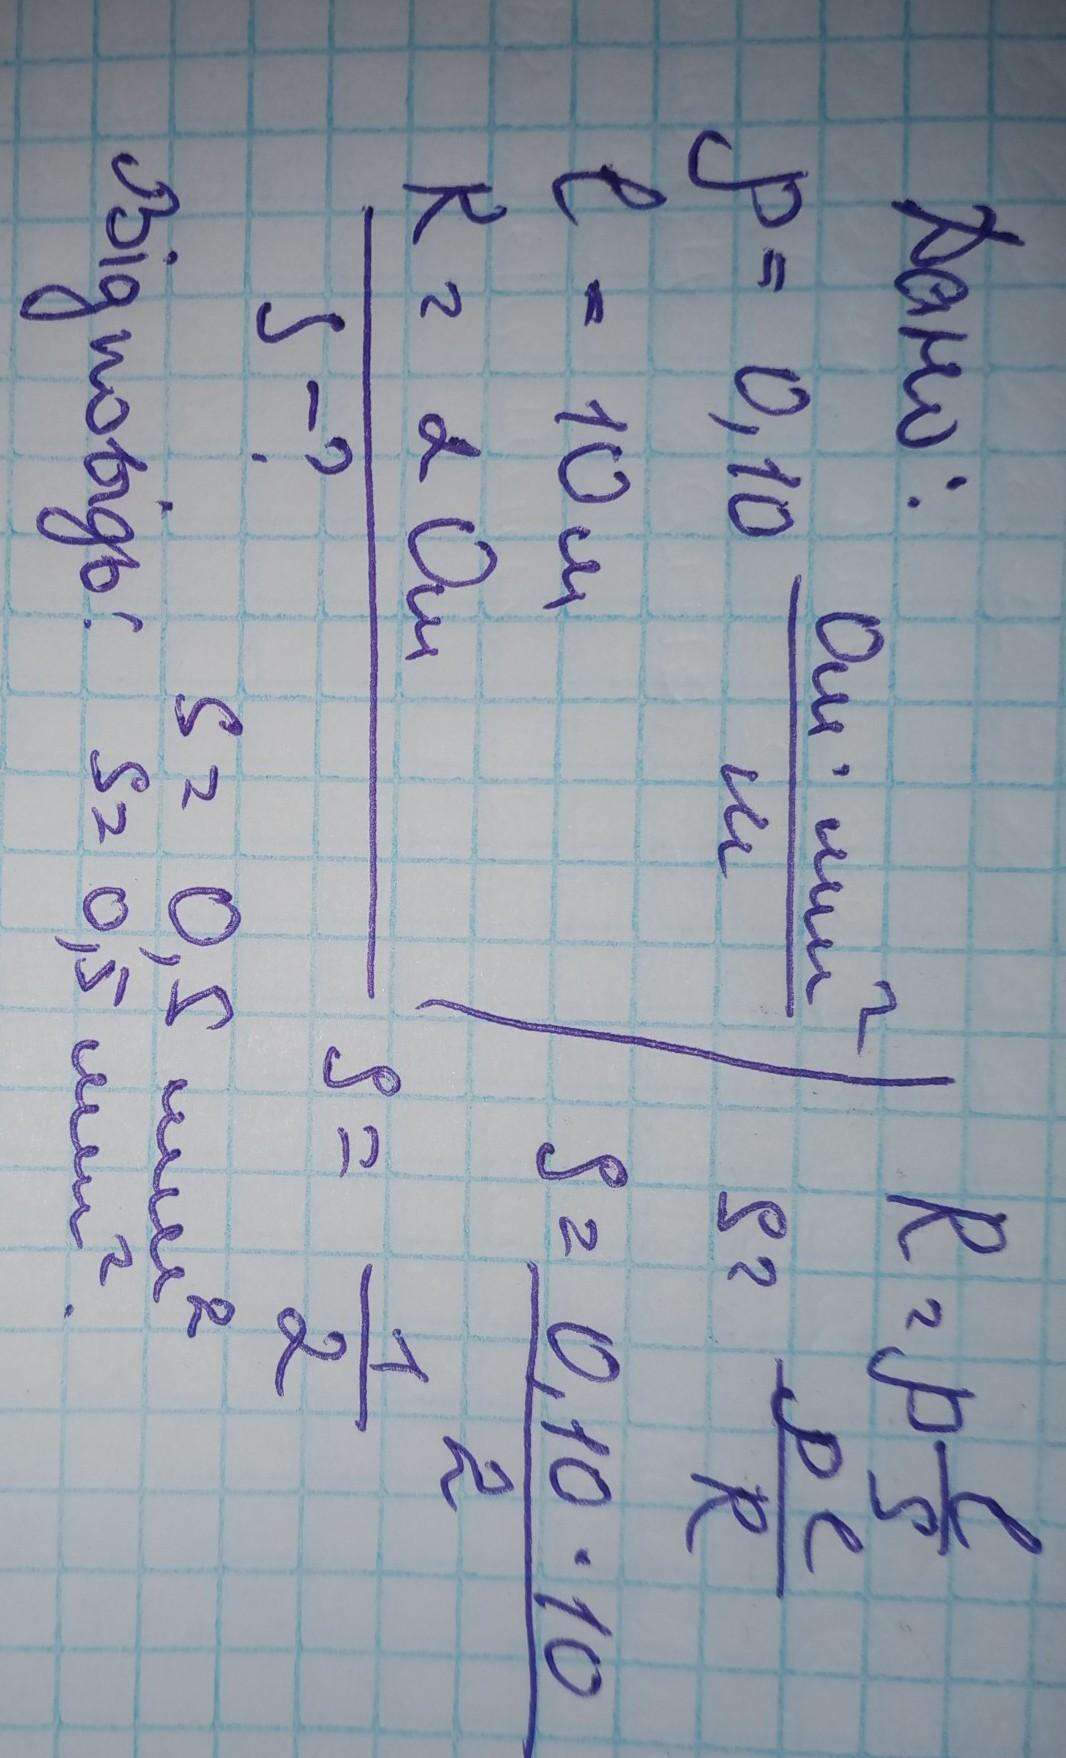 Дано:
ρ = 0,10 Ом · мм² / м
l = 10 м
R = 2 Ом
S - ?
R = ρ l / S
S = ρ l / R
S = 0,10 · 10 / 2
S = 1 / 2
S = 0,5 мм²
Відповідь: S = 0,5 мм².